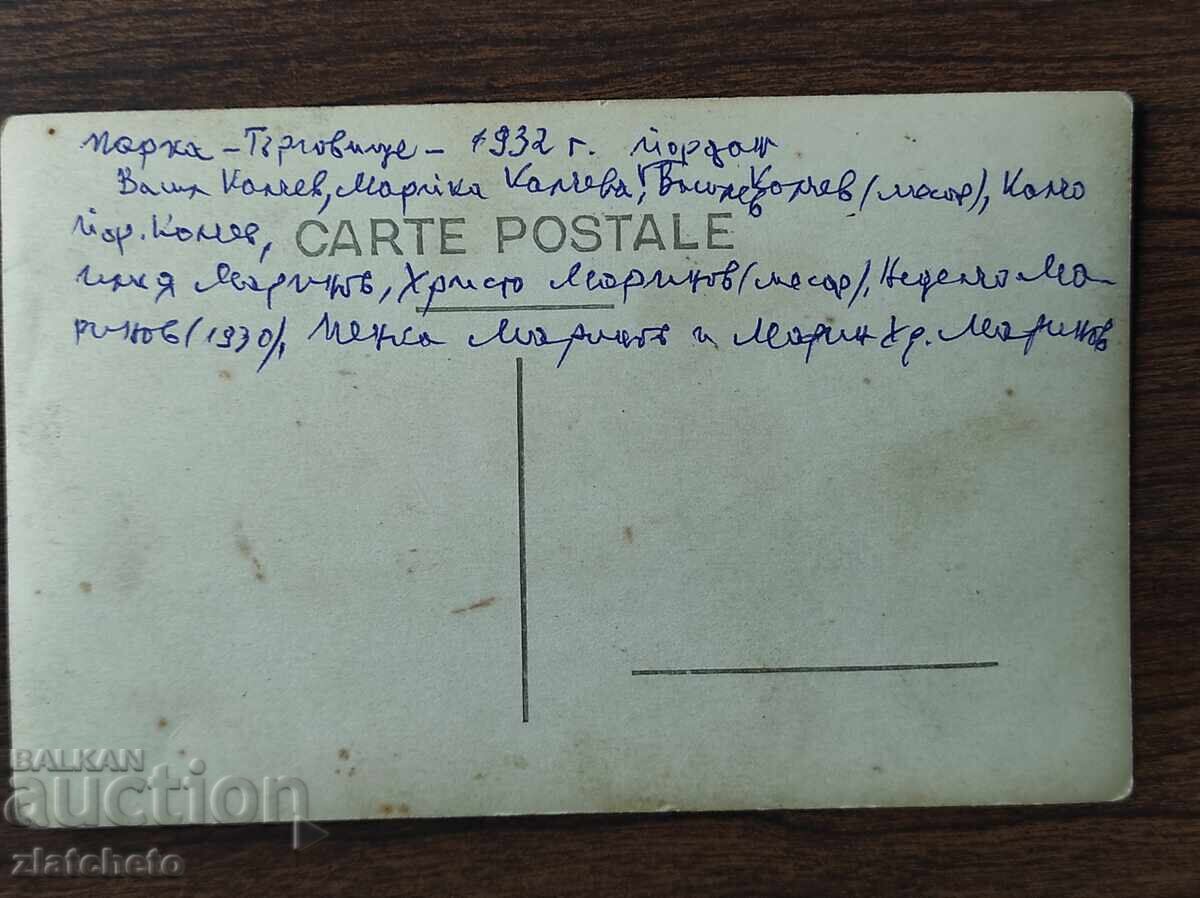 парка – Търговище – 1932 г. Йордан
Васил Колчев, Марийка Колчева, Василев Колчев (месар), Колчо
Йор. Колчев,
CARTE POSTALE
Илия Маринов, Христо Маринов (месар), Неделчо Ма-
ринов (1930), Пенка Маринов и Марин Хр. Маринов
BALKAN
auction
zlatcheto